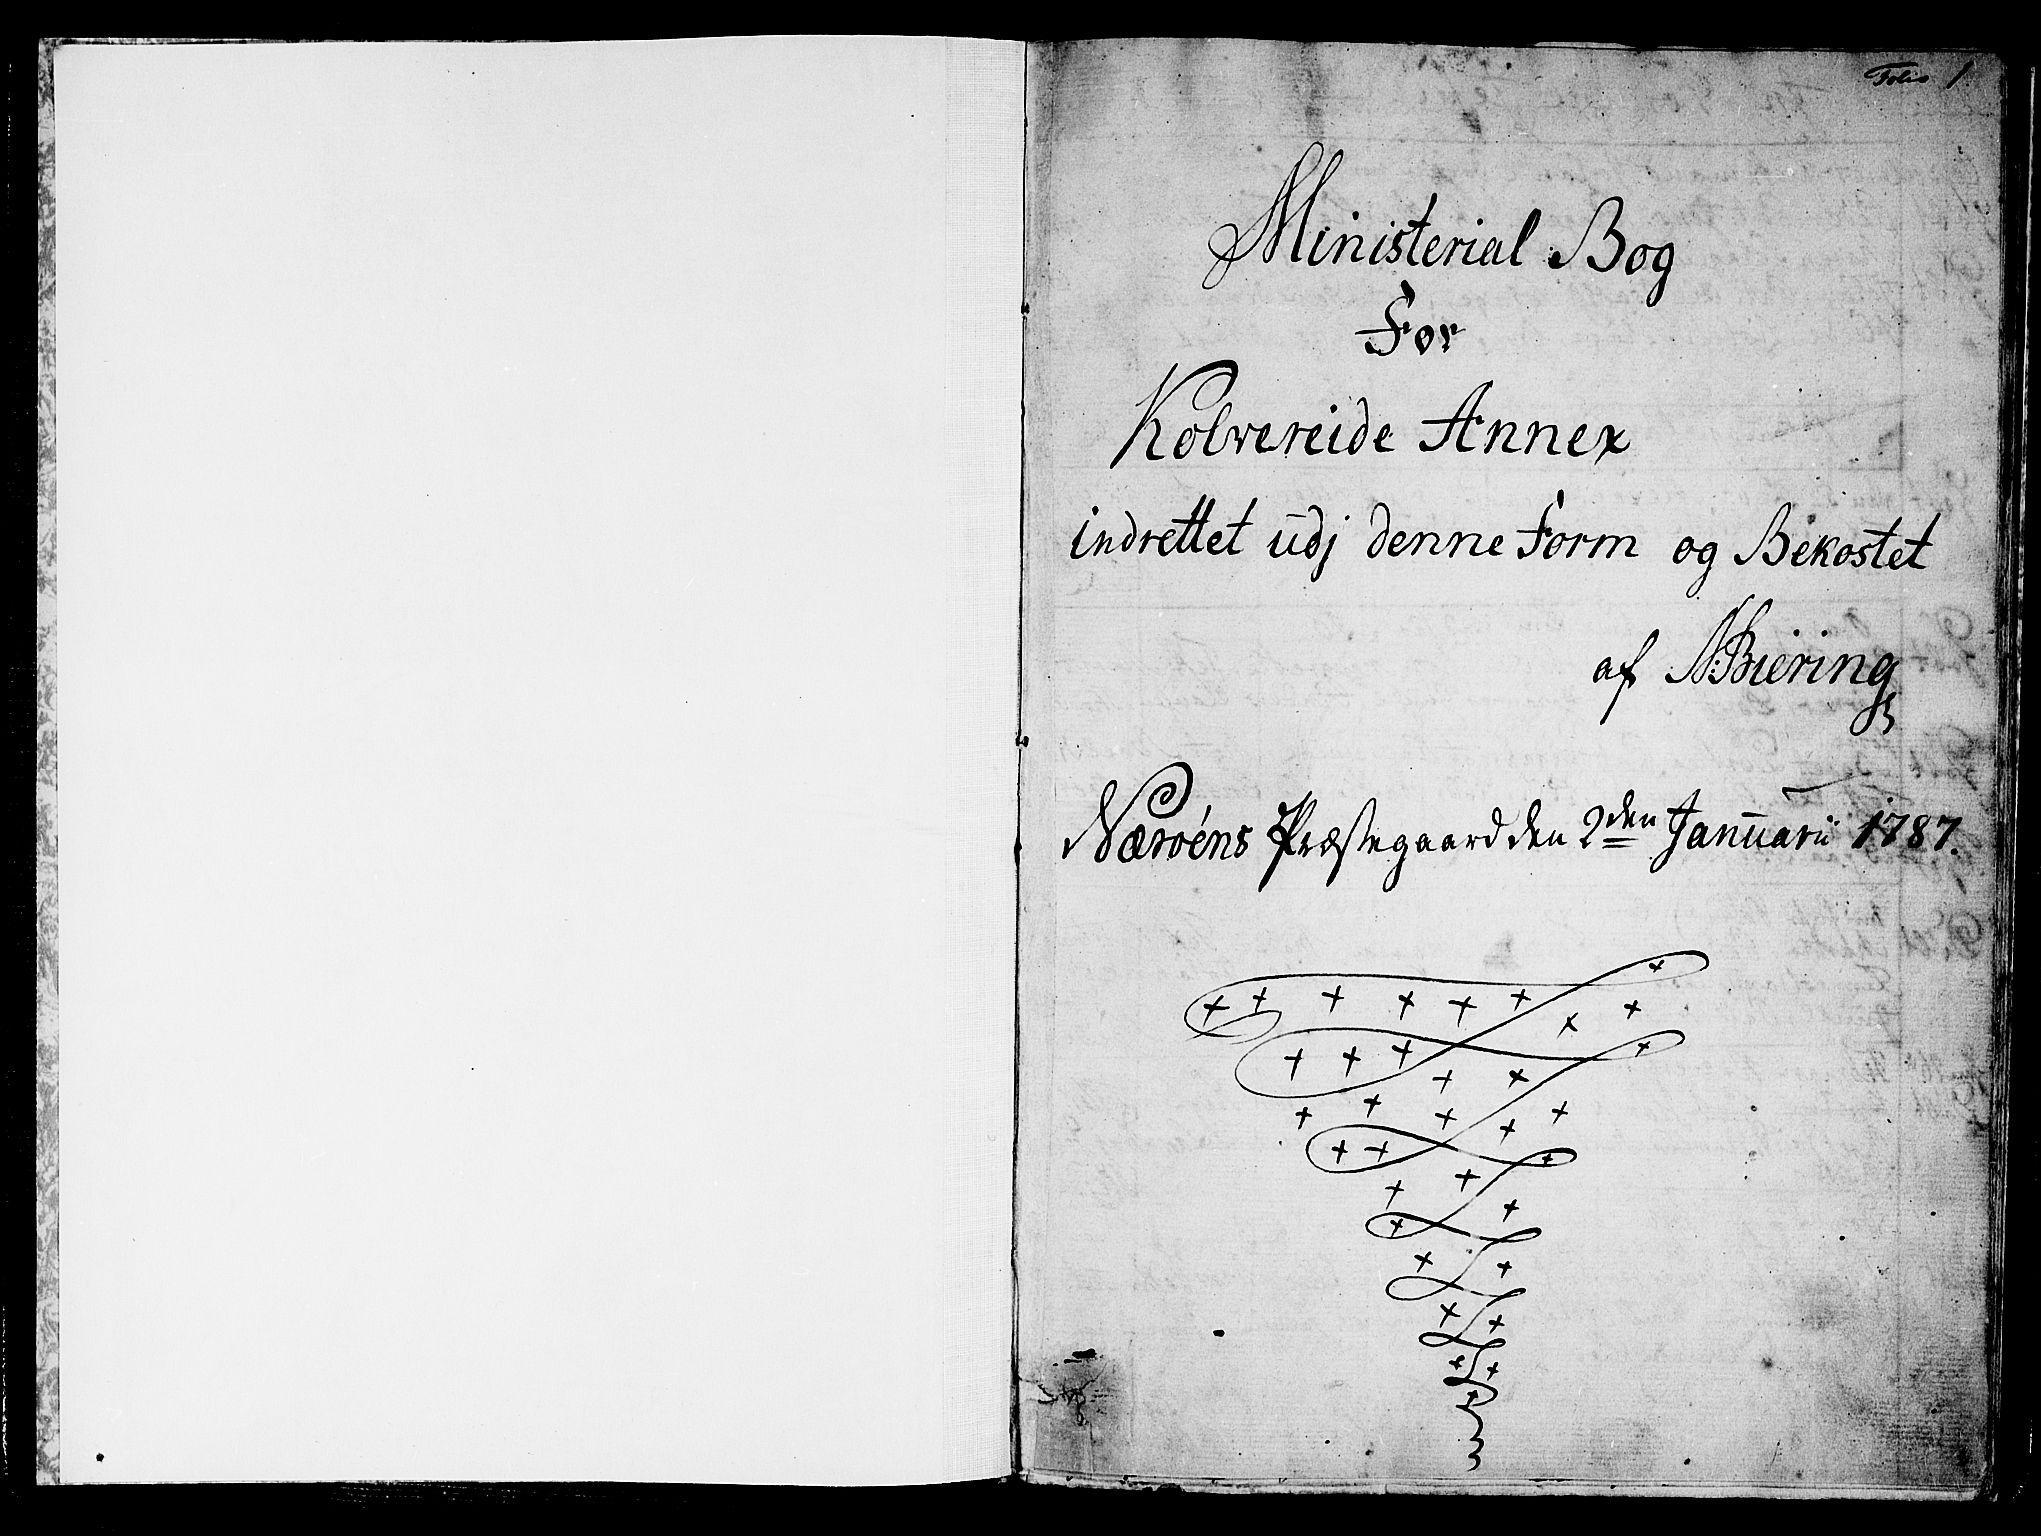 Folio 1
Ministerial Bog
For
Kolvereide Annex
indrettet udj denne Form og Bekostet
af N: Biering
Nærøens Præstegaard den 2den Januarii 1787.